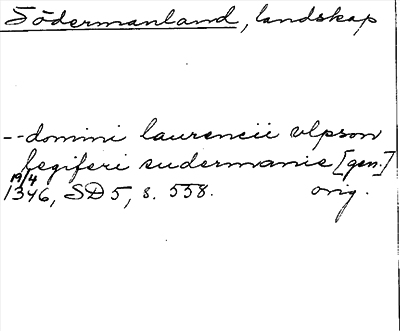 Södermanland, landskap
--domini laurencii vlpson
legiferi sudermanie [gen.]
19/4
1346, SD 5, s. 558. orig.